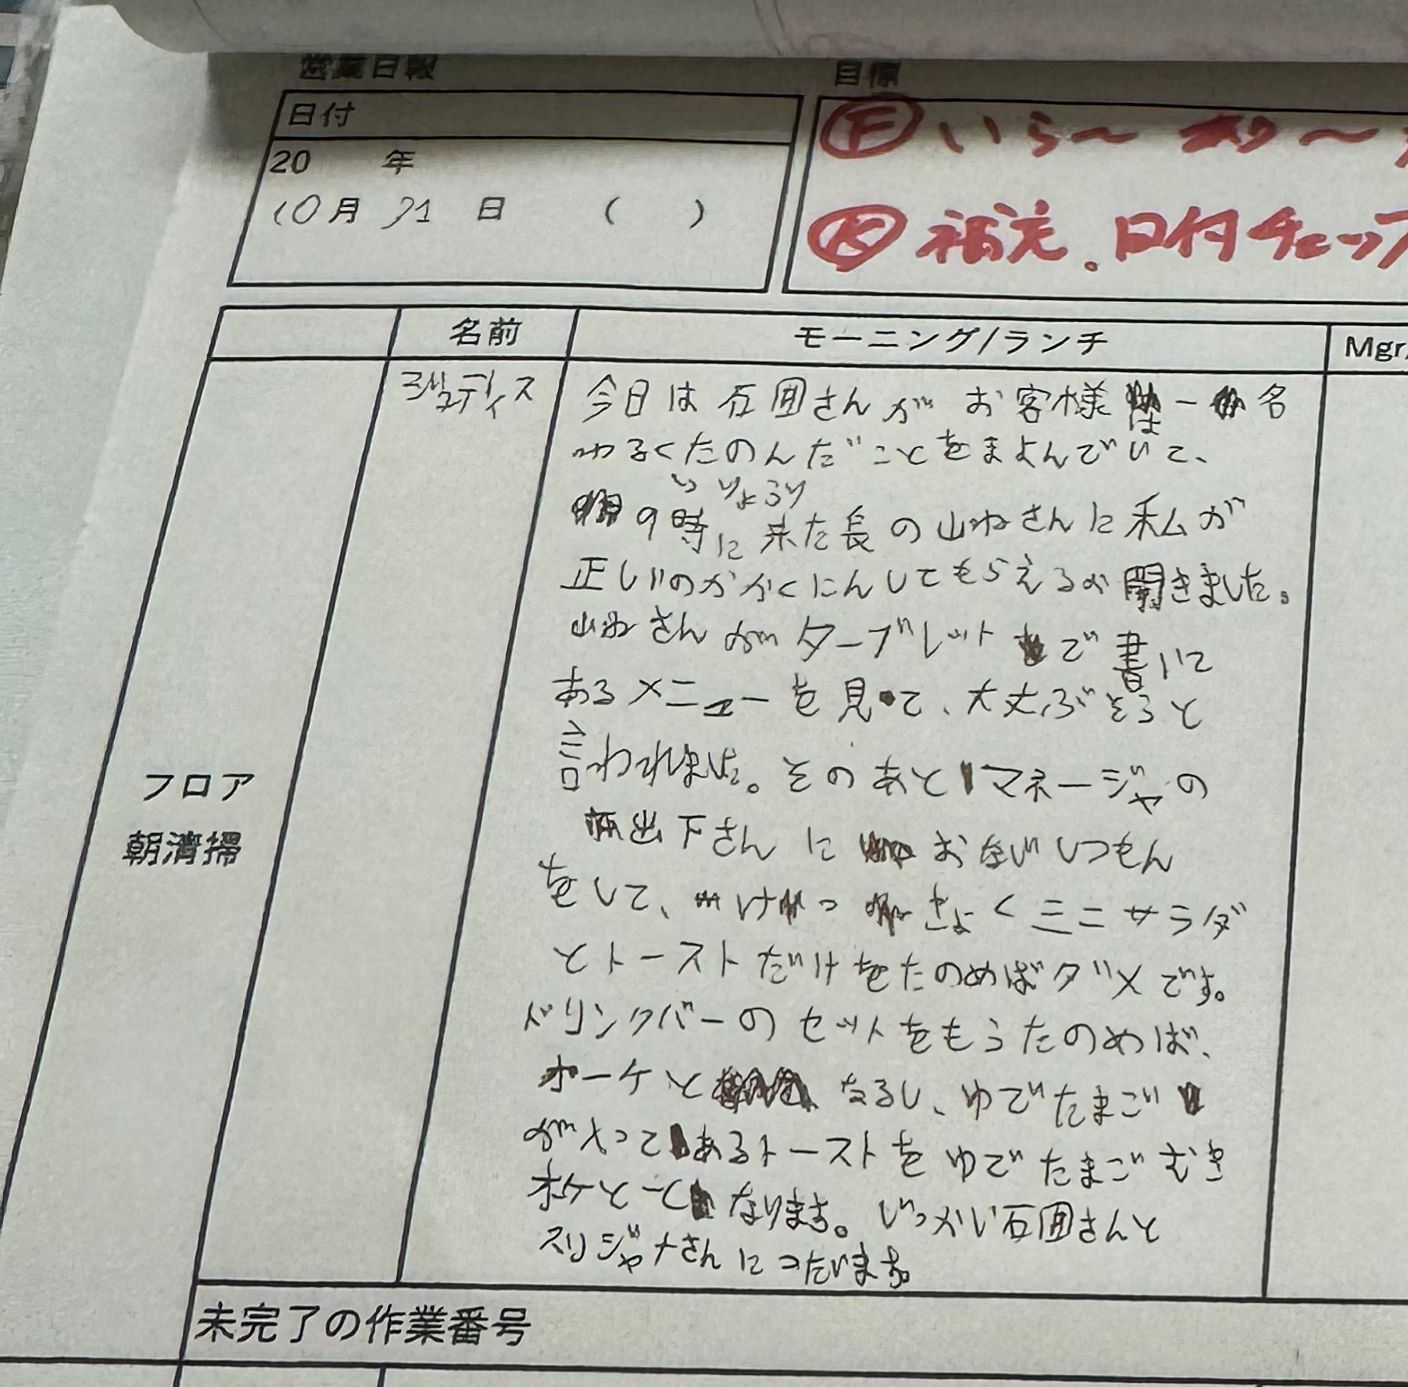 営業日報
目標
日付
20 年
10月 31 日 ( )
Ⓕ いら〜 あり〜
Ⓚ 補充、日付チェック
名前
モーニング/ランチ
Mgr
今日は石囲さんがお客様は一名
わるくたのんだことをまよんでいて、
いりょうり
9時に来た長の山ねさんに私が
正しいのかかくにんしてもらえるか聞きました。
山ねさんがターブレットで書いて
あるメニューを見て、大丈ぶそうと
言われました。そのあとマネージャの
出下さんにおなじしつもん
をして、けっきょくミニサラダ
とトーストだけをたのめばダメです。
ドリンクバーのセットをもうたのめば、
オーケとなるし、ゆでたまご
が入ってあるトーストをゆでたまごむき
オケとなります。じっかい石囲さんと
スリジャナさんにつたいます。
フロア
朝清掃
未完了の作業番号